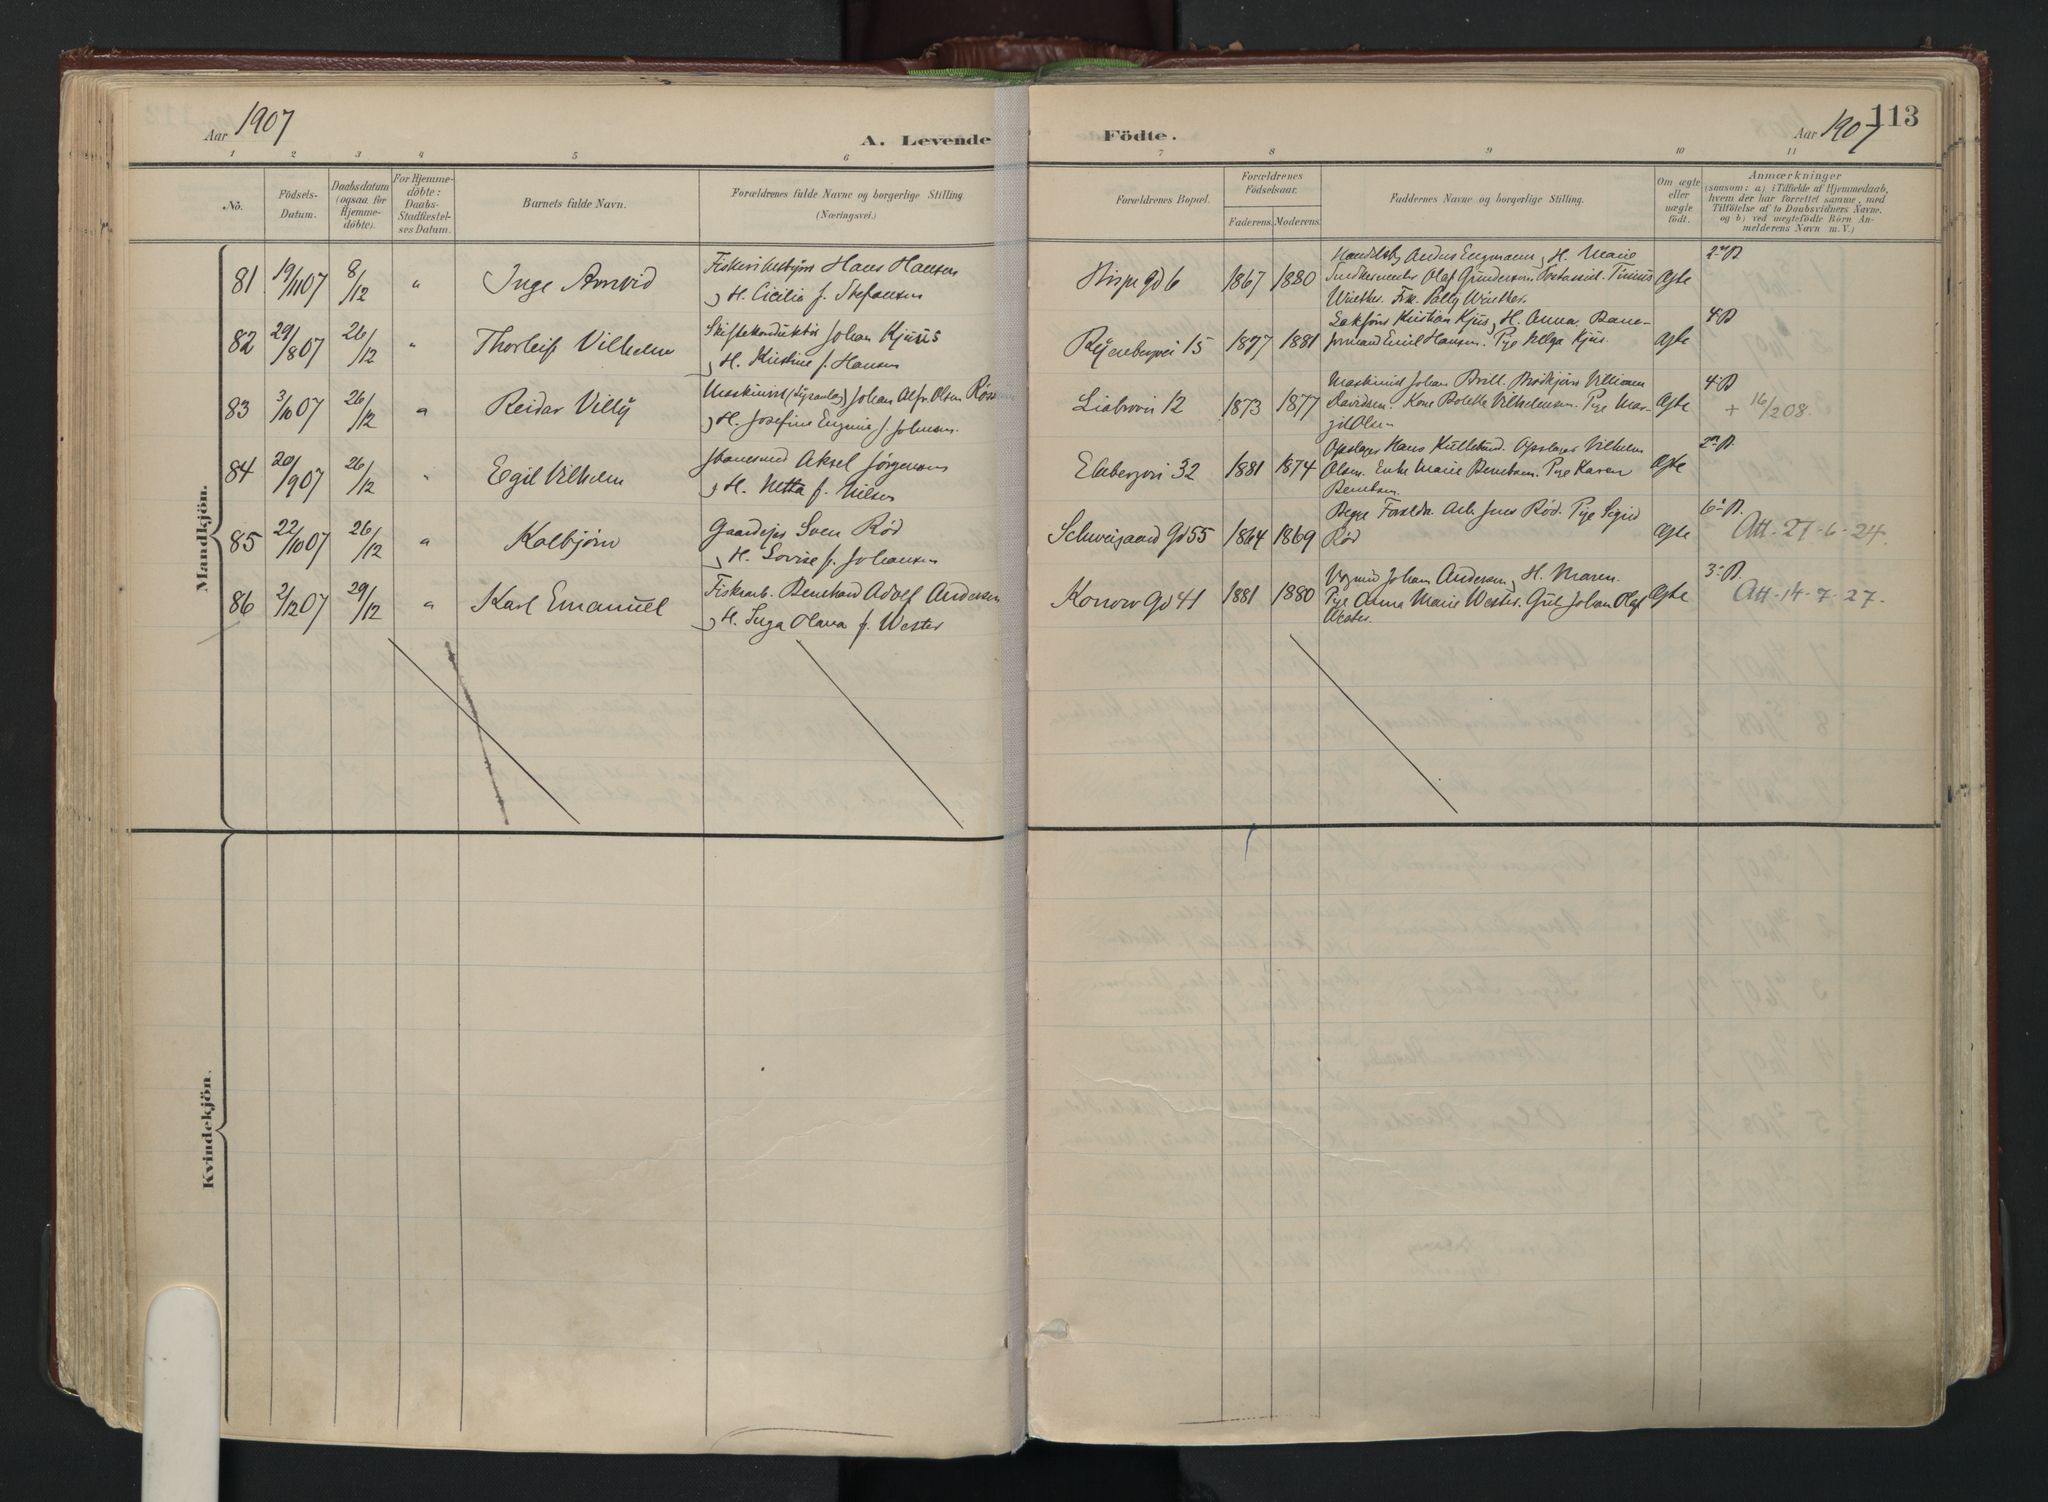 Aar 1907
A. Levende Födte.
Aar 1907
113
1 2 3 4 5 6 7 8 9 10 11
No.
Födsels-Datum.
Daabsdatum (ogsaa for Hjemmedöbte).
For Hjemmedöbte: Daabs-Stadfæstelses Datum.
Barnets fulde Navn.
Forældrenes fulde Navne og borgerlige Stilling (Næringsvei.)
Forældrenes Bopæl.
Forældrenes Födselsaar.
Faderens. Moderens.
Faddernes Navne og borgerlige Stilling.
Om ægte eller uægte födt.
Anmærkninger
(saasom: a) i Tilfælde af Hjemmedaab,
hvem der har forrettet samme, med
Tilföielse af to Daabsvidners Navne.
og b) ved uægtefödte Börn An-
melderens Navn m. V.)
Mandkjön.
81 19/11 07 8/12 " Inge Arnvid
Hans Hansen
H. Cicilia f. Stefansen
6 1867 1880
Anders Engmann, H. Marie
Olaf Gundersen
Winther. Frk. Winther.
Ægte
82 29/8 07 26/12 " Thorleif Vilhelm
Johan Kjuus
H. Kristine f. Hansen
15 1877 1881
Kristian Kjus, H. Anna.
Emil Hansen. Pige Helga Kjus.
Ægte 4 D
83 3/10 07 26/12 " Reidar Villy
Maskinist Johan Alfr. Olsen
H. Josefine Eugenie f. Johnsen.
12 1873 1877
Maskinist Johan
Davidsen. Kone Bolette Vilhelmsen. Pige Mar-
Olsen
Ægte 4 D
+ 16/2 08.
84 20/9 07 26/12 " Egil Vilhelm
Aksel Jörgensen
H. Netta f. Nilsen
Ekebergvei 32 1881 1874
Hans Vilhelm
Olsen. Enke Marie Berntsen. Pige Karen
Berntsen.
Ægte
85 22/10 07 26/12 " Kolbjörn
Sven Röd
H. Lovise f. Johansen
Schweigaard Gd 55 1864 1869
Begge Foreldr. Arb. Jens Röd. Pige Sigrid
Röd
Ægte 6 D.
Att. 27-6-24.
86 2/12 07 29/12 " Karl Emanuel
Fiskearb. Bernhard Adolf Andersen
H. Inga Olava f. Wester
Konow Gd 41 1881 1880
Johan Andersen, H. Maren.
Pige Anne Marie Wester. Gut Johan Olaf
Wester.
Ægte 3 D.
Att. 14-7-27.
Kvindekjön.